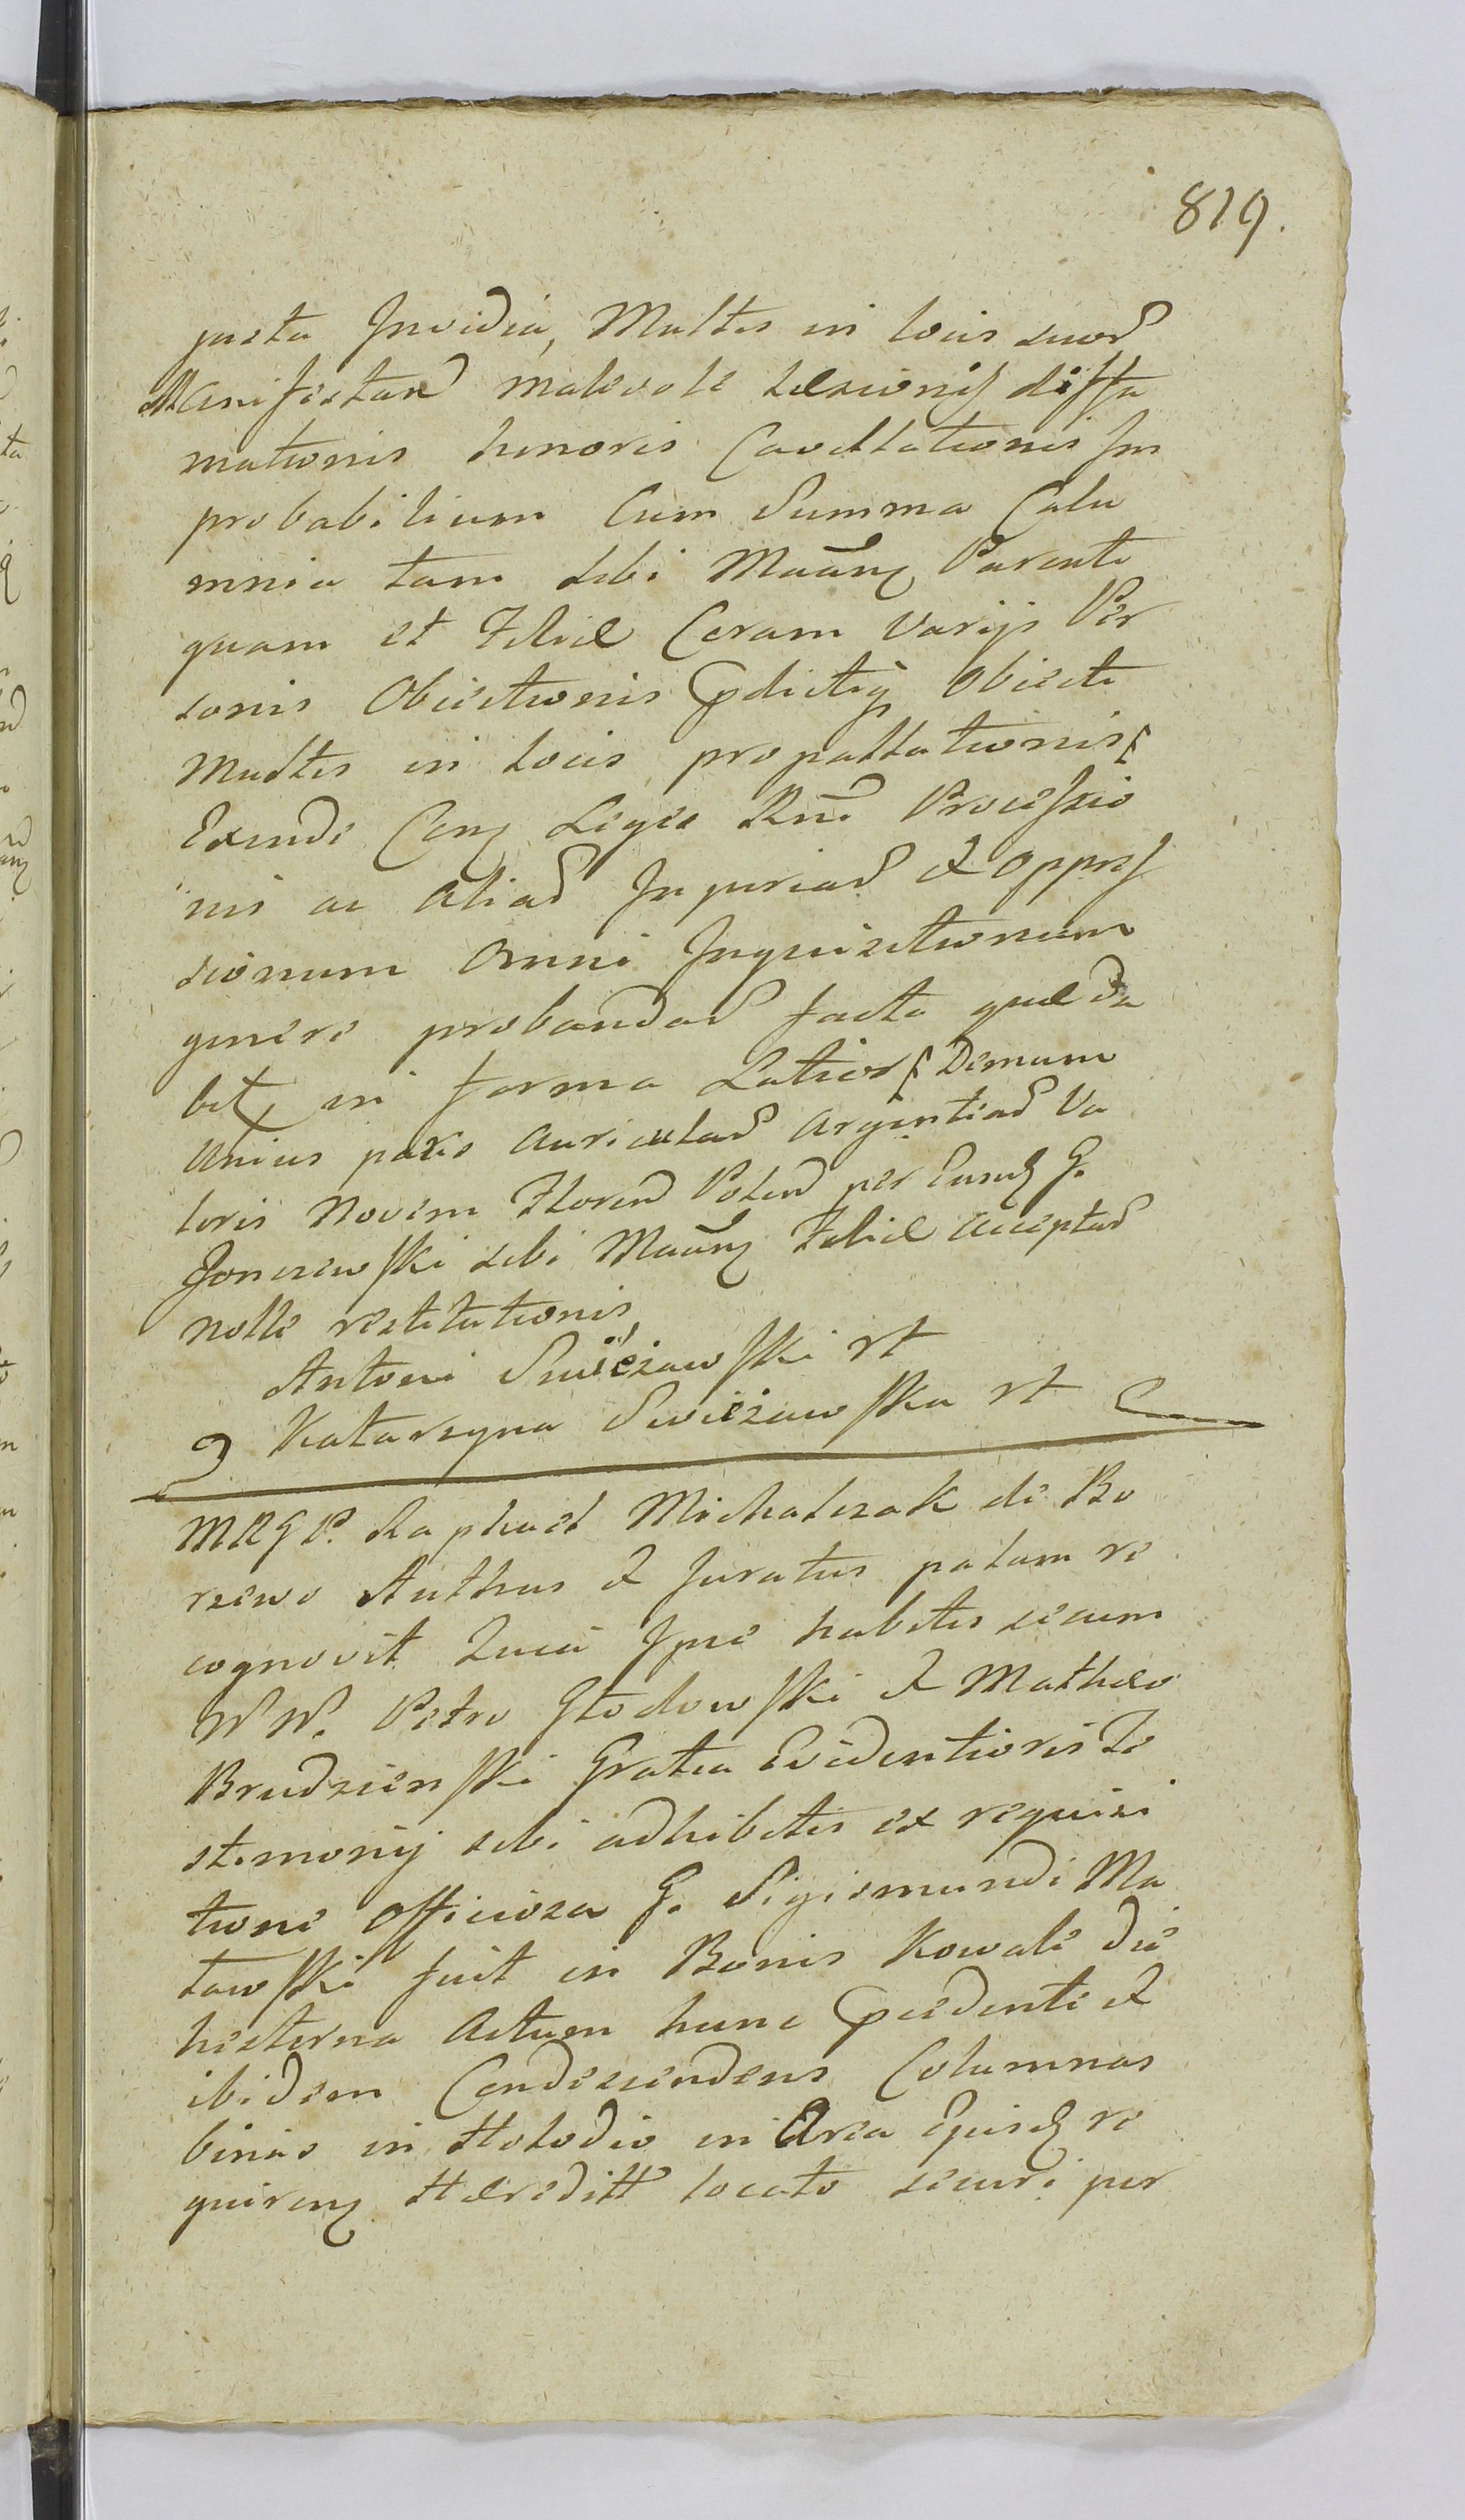 819.
justa Invidia, Multis in locis suor
Manifestar malevole læsionis diffa
mationis honoris Cavillationis Im
probabilium Cum Summa Calu
mnia tam sibi Maãnq Parenti
quam et Filiæ Coram Varijs Per
sonis Obiectionis Prdictiq Obiecti
Multis in locis propallationis
Exinde Conq Leges Rni Processio
nis ac aliar Injuriar & Oppres
sionum Omni Inquisitionum
genere probandar facta quæ da
bit, in forma Latiori Demum
Unius paris Auricular Argentiar Va
loris Novem Floren Polon per Eund G.
Jonczewski sibi Maãnq Filiæ acceptar
nolle restitutionis
Antoni Swieżawski rt
Katarzyna Swieżawska rt
MRGP. Raphael Michalczak de Bo
rzewo Authus & Juratus palam re
cognovit Quia Ipse habitis secum
NN. Petro Głodowski & Mathæo
Brudzienski Gratia Evidentioris Te
stimonij sibi adhibitis ex requisi
tione Officiosa G. Sigismundi Ma
towski fuit in Bonis Kowale die
hesterna Actum hunc Prædenti &
ibidem Condescendens Columnas
binas in Stolodio in Area Ejusd re
quirenq Hæreditt locato securi per